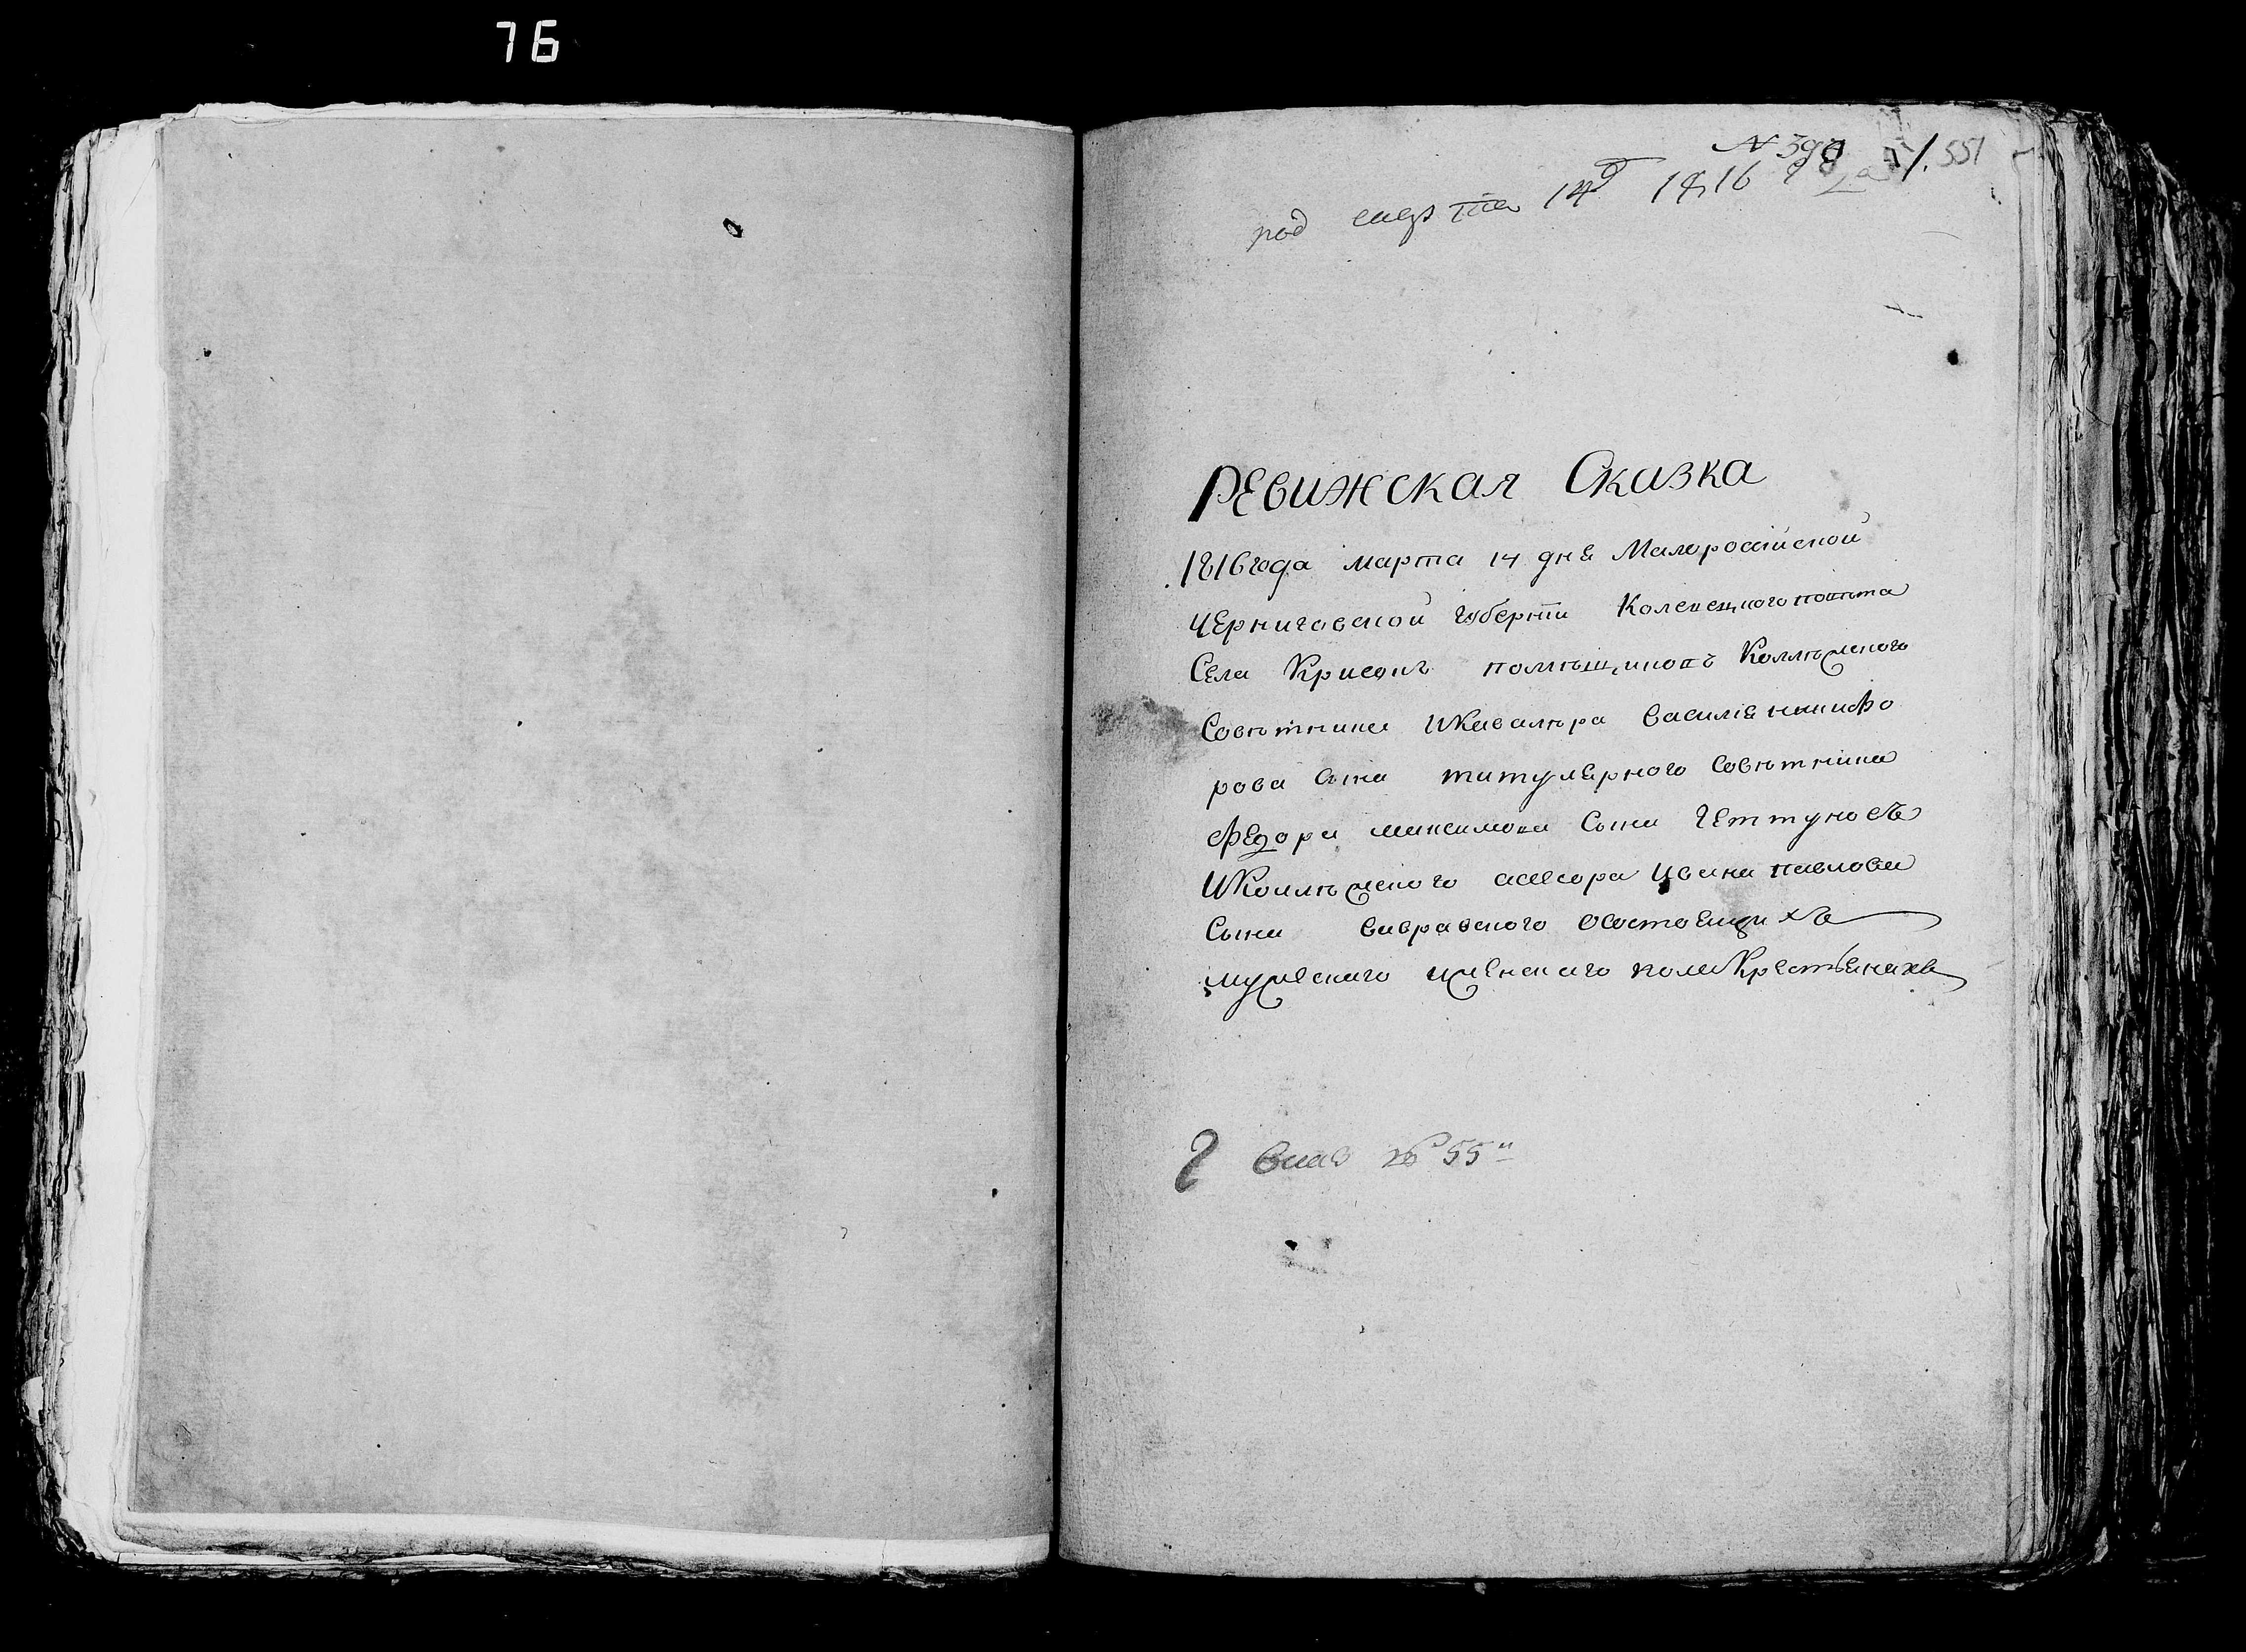 76
N 390 551
под марта 14д 1816 года
РЕВИЖСКАЯ Сказка
1816 года марта 14 дня Малоросiйской
ЧЕрниговской губернiи Козелецкого повѣта
СЕла Крисокъ помѣщиковъ Коллѣжского
Совѣтника И Кавалѣра Василiя никифо
рова Сына титулярного Совѣтника
ФЕдора максимова Сына
И Коллѣжского асесора Ивана павлова
Сына осостоящихъ
мужеского иженского пола Крестьянахъ
55